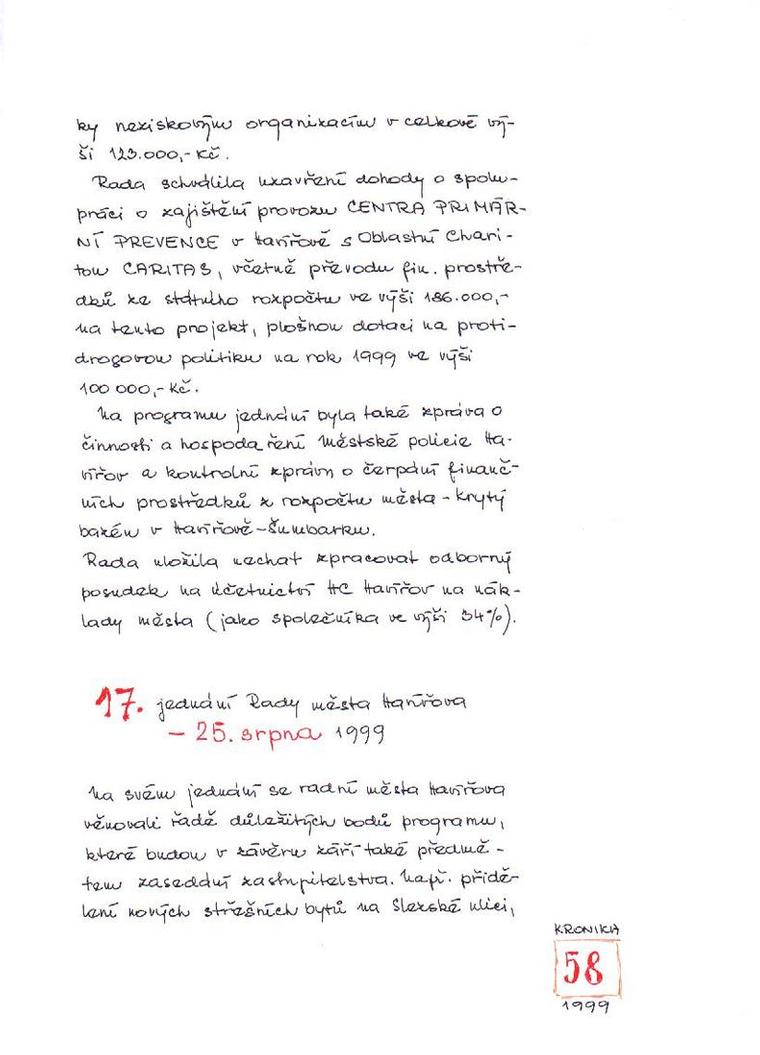 ky neziskovým organizacím v celkové vý-
ši 123.000,- Kč.
Rada schválila uzavření dohody o spolu-
práci o zajištění provozu CENTRA PRIMÁR-
NÍ PREVENCE v Havířově s Oblastní Chari-
tou CARITAS, včetně převodu fin. prostře-
dků ze státního rozpočtu ve výši 186.000,-
na tento projekt, plošnou dotaci na proti-
drogovou politiku na rok 1999 ve výši
100 000,- Kč.
Na programu jednání byla také zpráva o
činnosti a hospodaření Městské policie Ha-
vířov a kontrolní zprávy o čerpání finanč-
ních prostředků z rozpočtu města - krytý
bazén v Havířově-Šumbarku.
Rada uložila nechat zpracovat odborný
posudek na účetnictví HC Havířov na nák-
lady města (jako společníka ve výši 34%).
17. jednání Rady města Havířova
- 25. srpna 1999
Na svém jednání se radní města Havířova
věnovali řadě důležitých bodů programu,
které budou v závěru září také předmě-
tem zasedání zastupitelstva. Např. přidě-
lení nových střešních bytů na Slezské ulici,
KRONIKA
58
1999